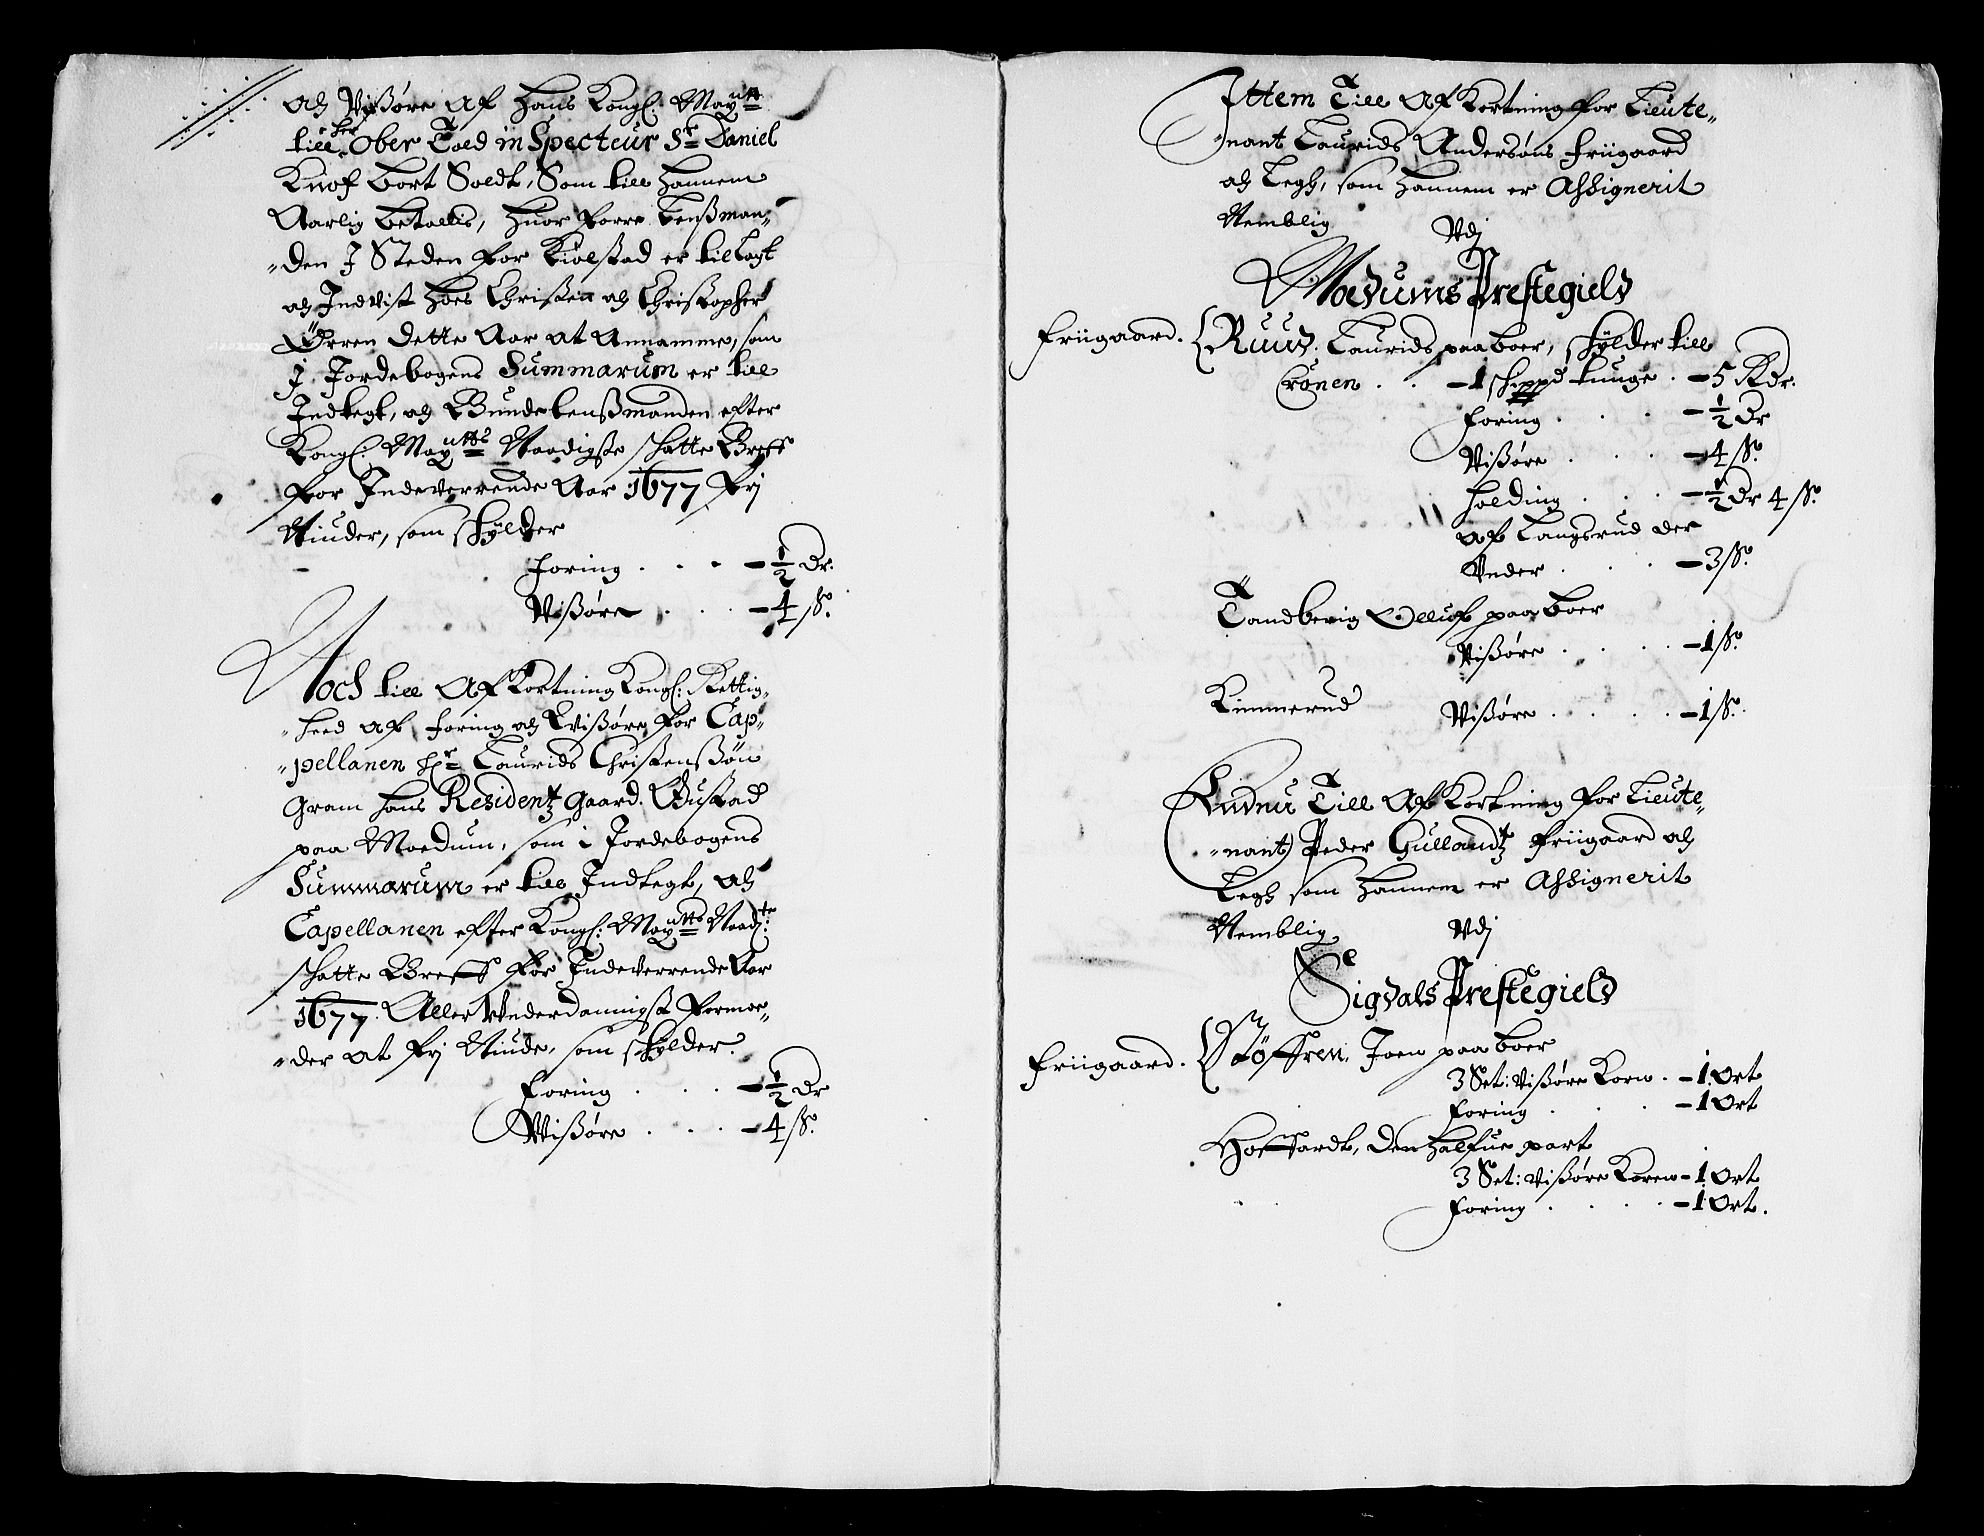 och Vißøre af Hans Kongl: Maytt
till ker Ober Told in Specteur Sr Daniel
Knof bort Soldt, Som till hannem
Aarlig betallis, huor forre Lenßman„
„den J Steden for Kiølstad er tillLagt
och Indvist hoes Christen och Christopher
Ørren dette Aar at Annamme, som
J Jordebogens Summarum er till
Indtegt, och Bunde Lenßmanden efter
Kongl: Maytts Naadigste schatte Breff
for Indeverrende Aar 1677 frj
Niuder, som schylder
foring . . . – ½ Dr.
Vißøre . . . – 4 ß.
Noch till Af Kortning Kongl: Rettig„
„heed af foring och Lvißøre for Cap„
„pellanen Hr Laurids Christenßøn
Gram hans Residentz gaard. Bustad
paa Moedum, som i Jordebogens
Summarum er till Indtegt, och
Capellanen efter Kongl: Maytts Naadte:
schatte Breff for Indeverrende Aar
1677. Aller Underdannigst formoe„
„der at frj Niude, som schylder.
foring . . . – ½ Dr
Vißøre . . . – 4 ß.
Ittem Till Af Kortning for Lieute„
„nant Laurids Andersøns friigaard
och Legh, som hannem er Assignerit
Nemblig Vdj
Modums Prestegield
friigaard. Ruud. Laurids paa boer, schylder till
Cronen . . – 1 schippd tunge . – 5 Rdr.
foring . . . – ½ Dr
Vißøre . . . – 4 ß.
holding . . . – ½ Dr 4 ß.
af Langsrud der
Vnder . . . – 3 ß.
Tandbevig Olluf paa boer
Vißøre . . . – 1 ß.
Kimmerud
Vißøre . . . . – 1 ß.
Endnu Till Af Kortning for Lieute„
„nant Peder Gullandtz friigaard och
Legh som hannem er Assignerit
Nemblig Vdj
Sigdals Prestegield
friigaard. Støffren. Joen paa boer
3 Set: Vißøre Korn . – 1 Ort
foring . . . – 1 Ort
Hoffardt, den halfue part
3 Set: Vißøre Koren – 1 Ort
foring . . . . – 1 Ort.